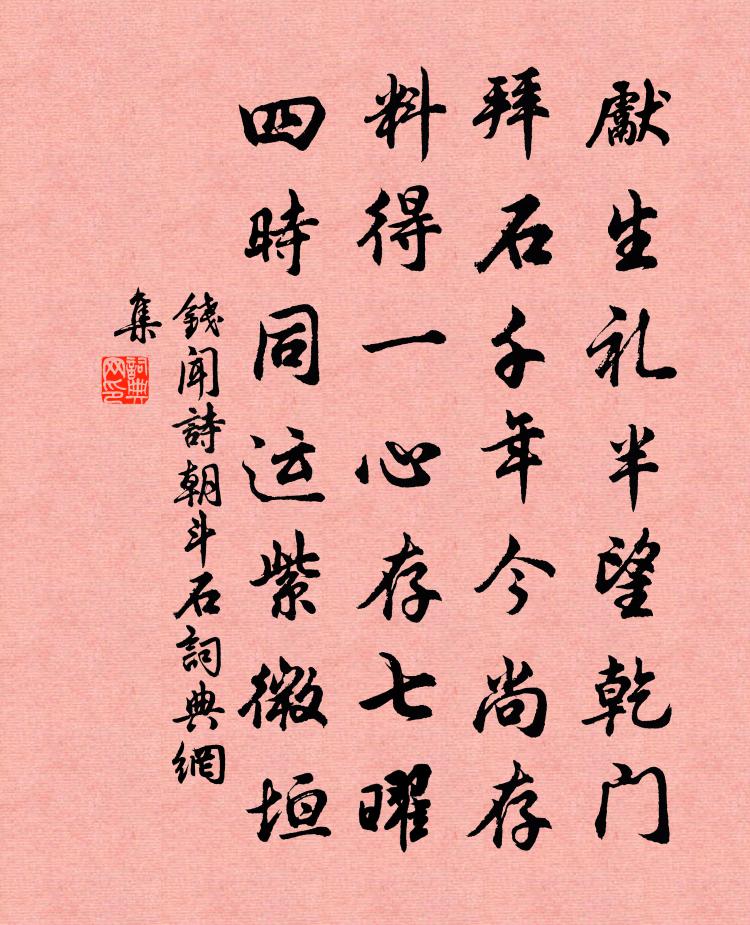 獻生礼半望乾门
拜石千年今尚存
料得一心存七曜
四時同运紫微垣
錢闻詩朝斗石詞典網
集
詞典
网印